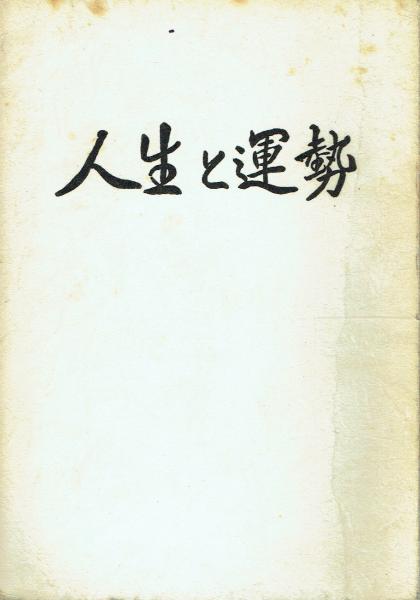 人生と運勢